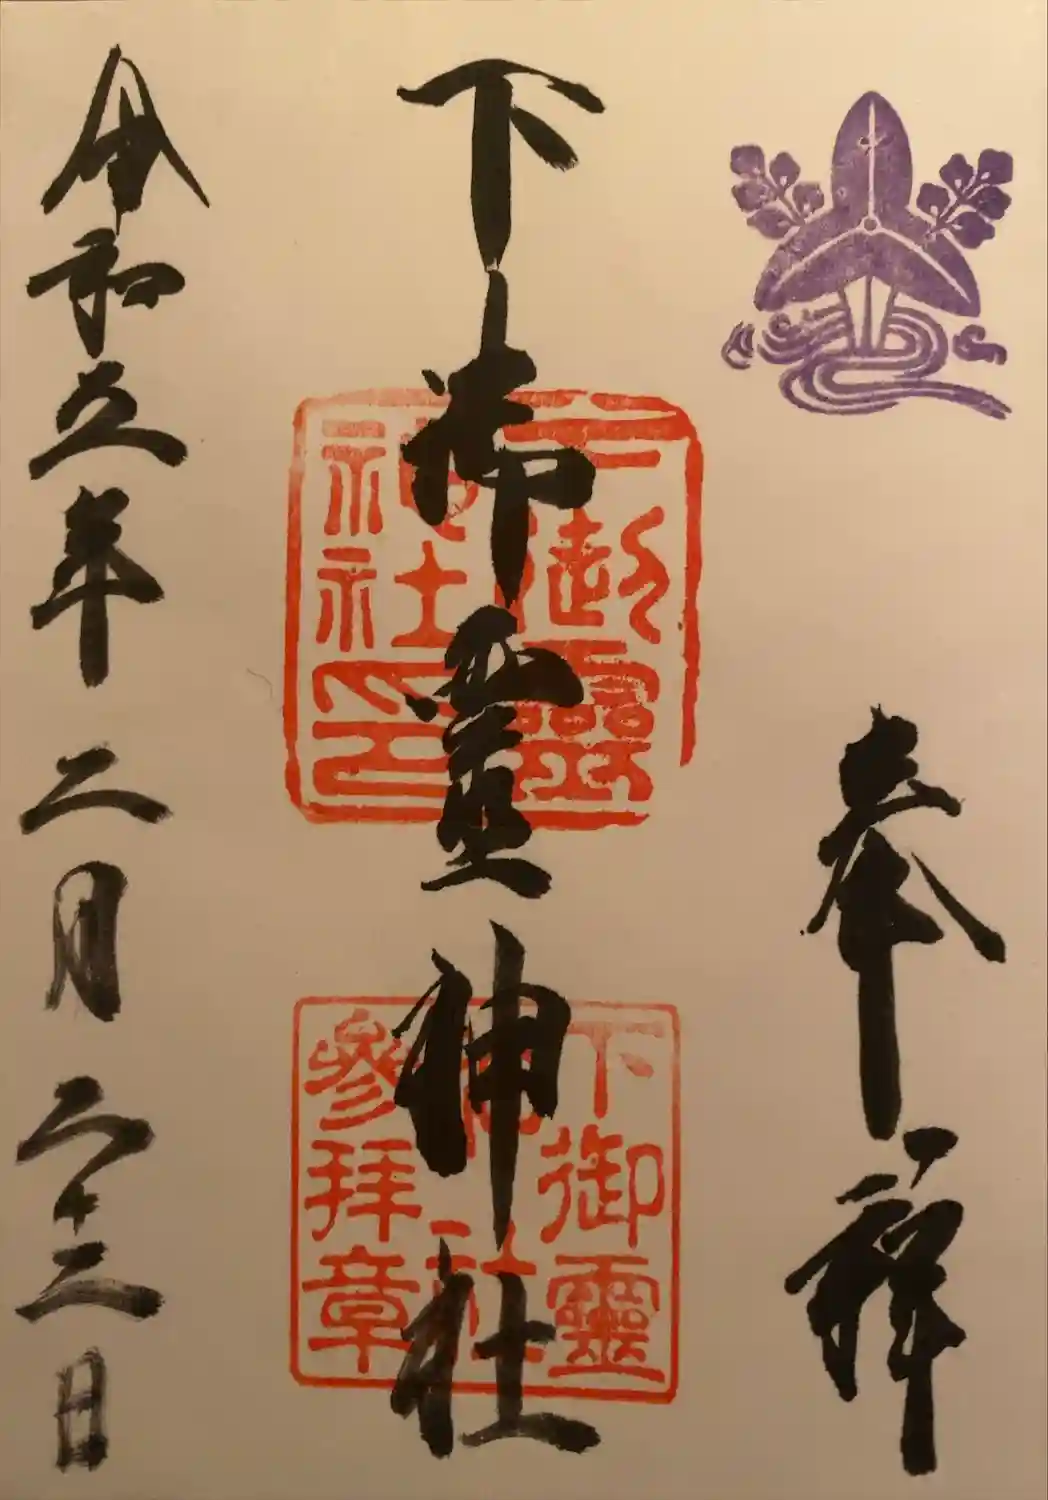 奉拝
下御靈神社
下御靈
神社印
下御靈
神社
參拝章
令和五年二月二十三日